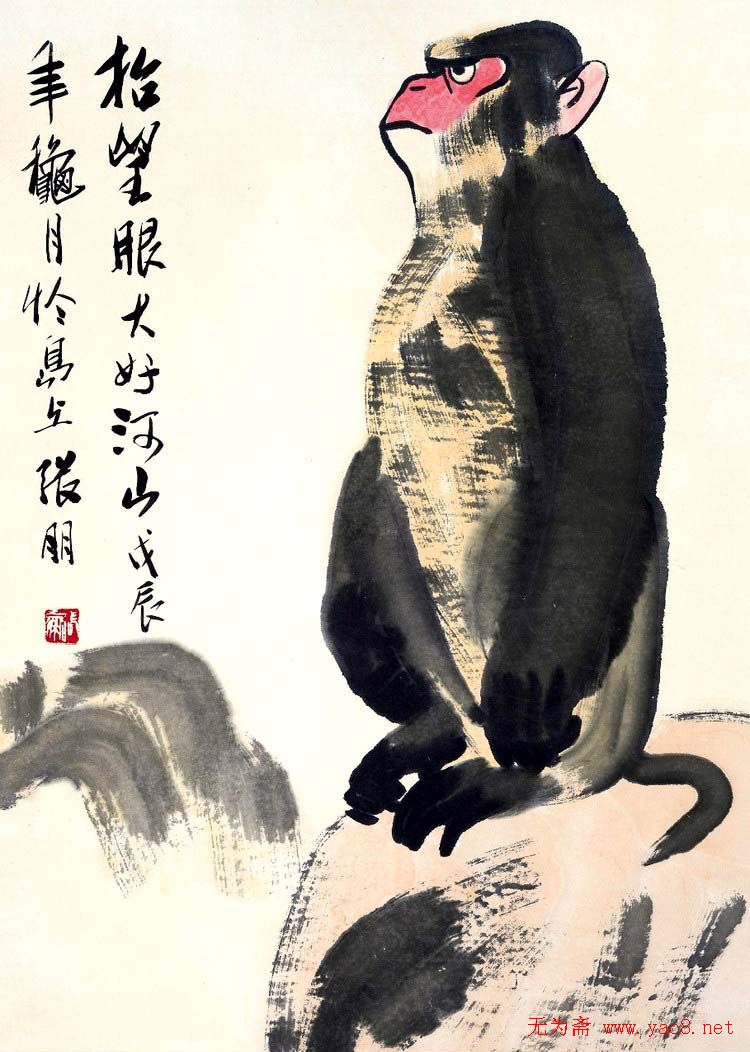 抬望眼大好河山戊辰
年龝月於島上張朋
无为斋 www.yac8.net